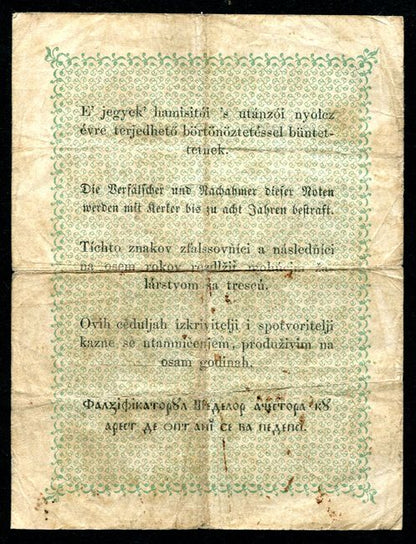 E' jegyek' hamisitói 's utánzói nyolcz
évre terjedhető börtönöztetéssel büntet-
tetnek.
Die Verfälscher und Nachahmer dieser Noten
werden mit Kerker bis zu acht Jahren bestraft.
Tíchto znakov zfalssovňíci a následňíci
na osem rokov
lárstvom sa trescú.
Ovih ceduljah izkrivitelji i spotvoritelji
kazne se utamničenjem, produživim na
osam godinah.
арест де опт ані се ва педепсі.